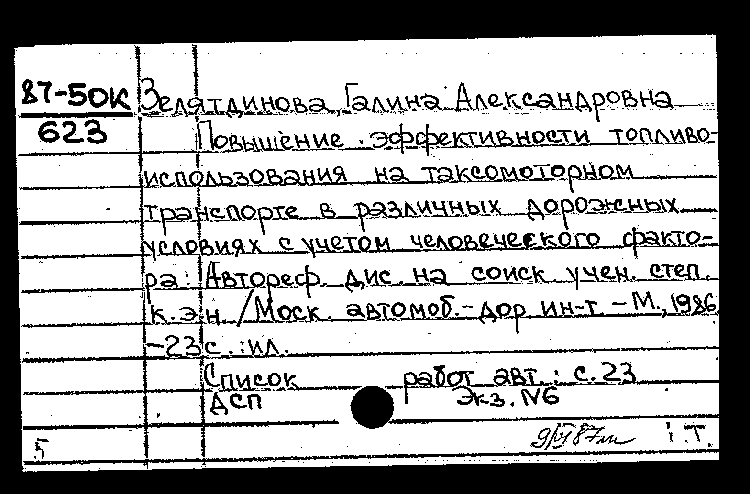 87-50К Зелятдинова, Галина Александровна
623 Повышение эффективности топливо-
использования на таксомоторном
транспорте в различных дорожных
условиях с учетом человеческого факто-
ра: Автореф. дис. на соиск. учен. степ.
к.э.н. /Моск. автомоб.-дор. ин-т. – М., 1986.
– 23 с.: ил.
Список работ авт.: с. 23
ДСП Экз. №6
5 i.T.